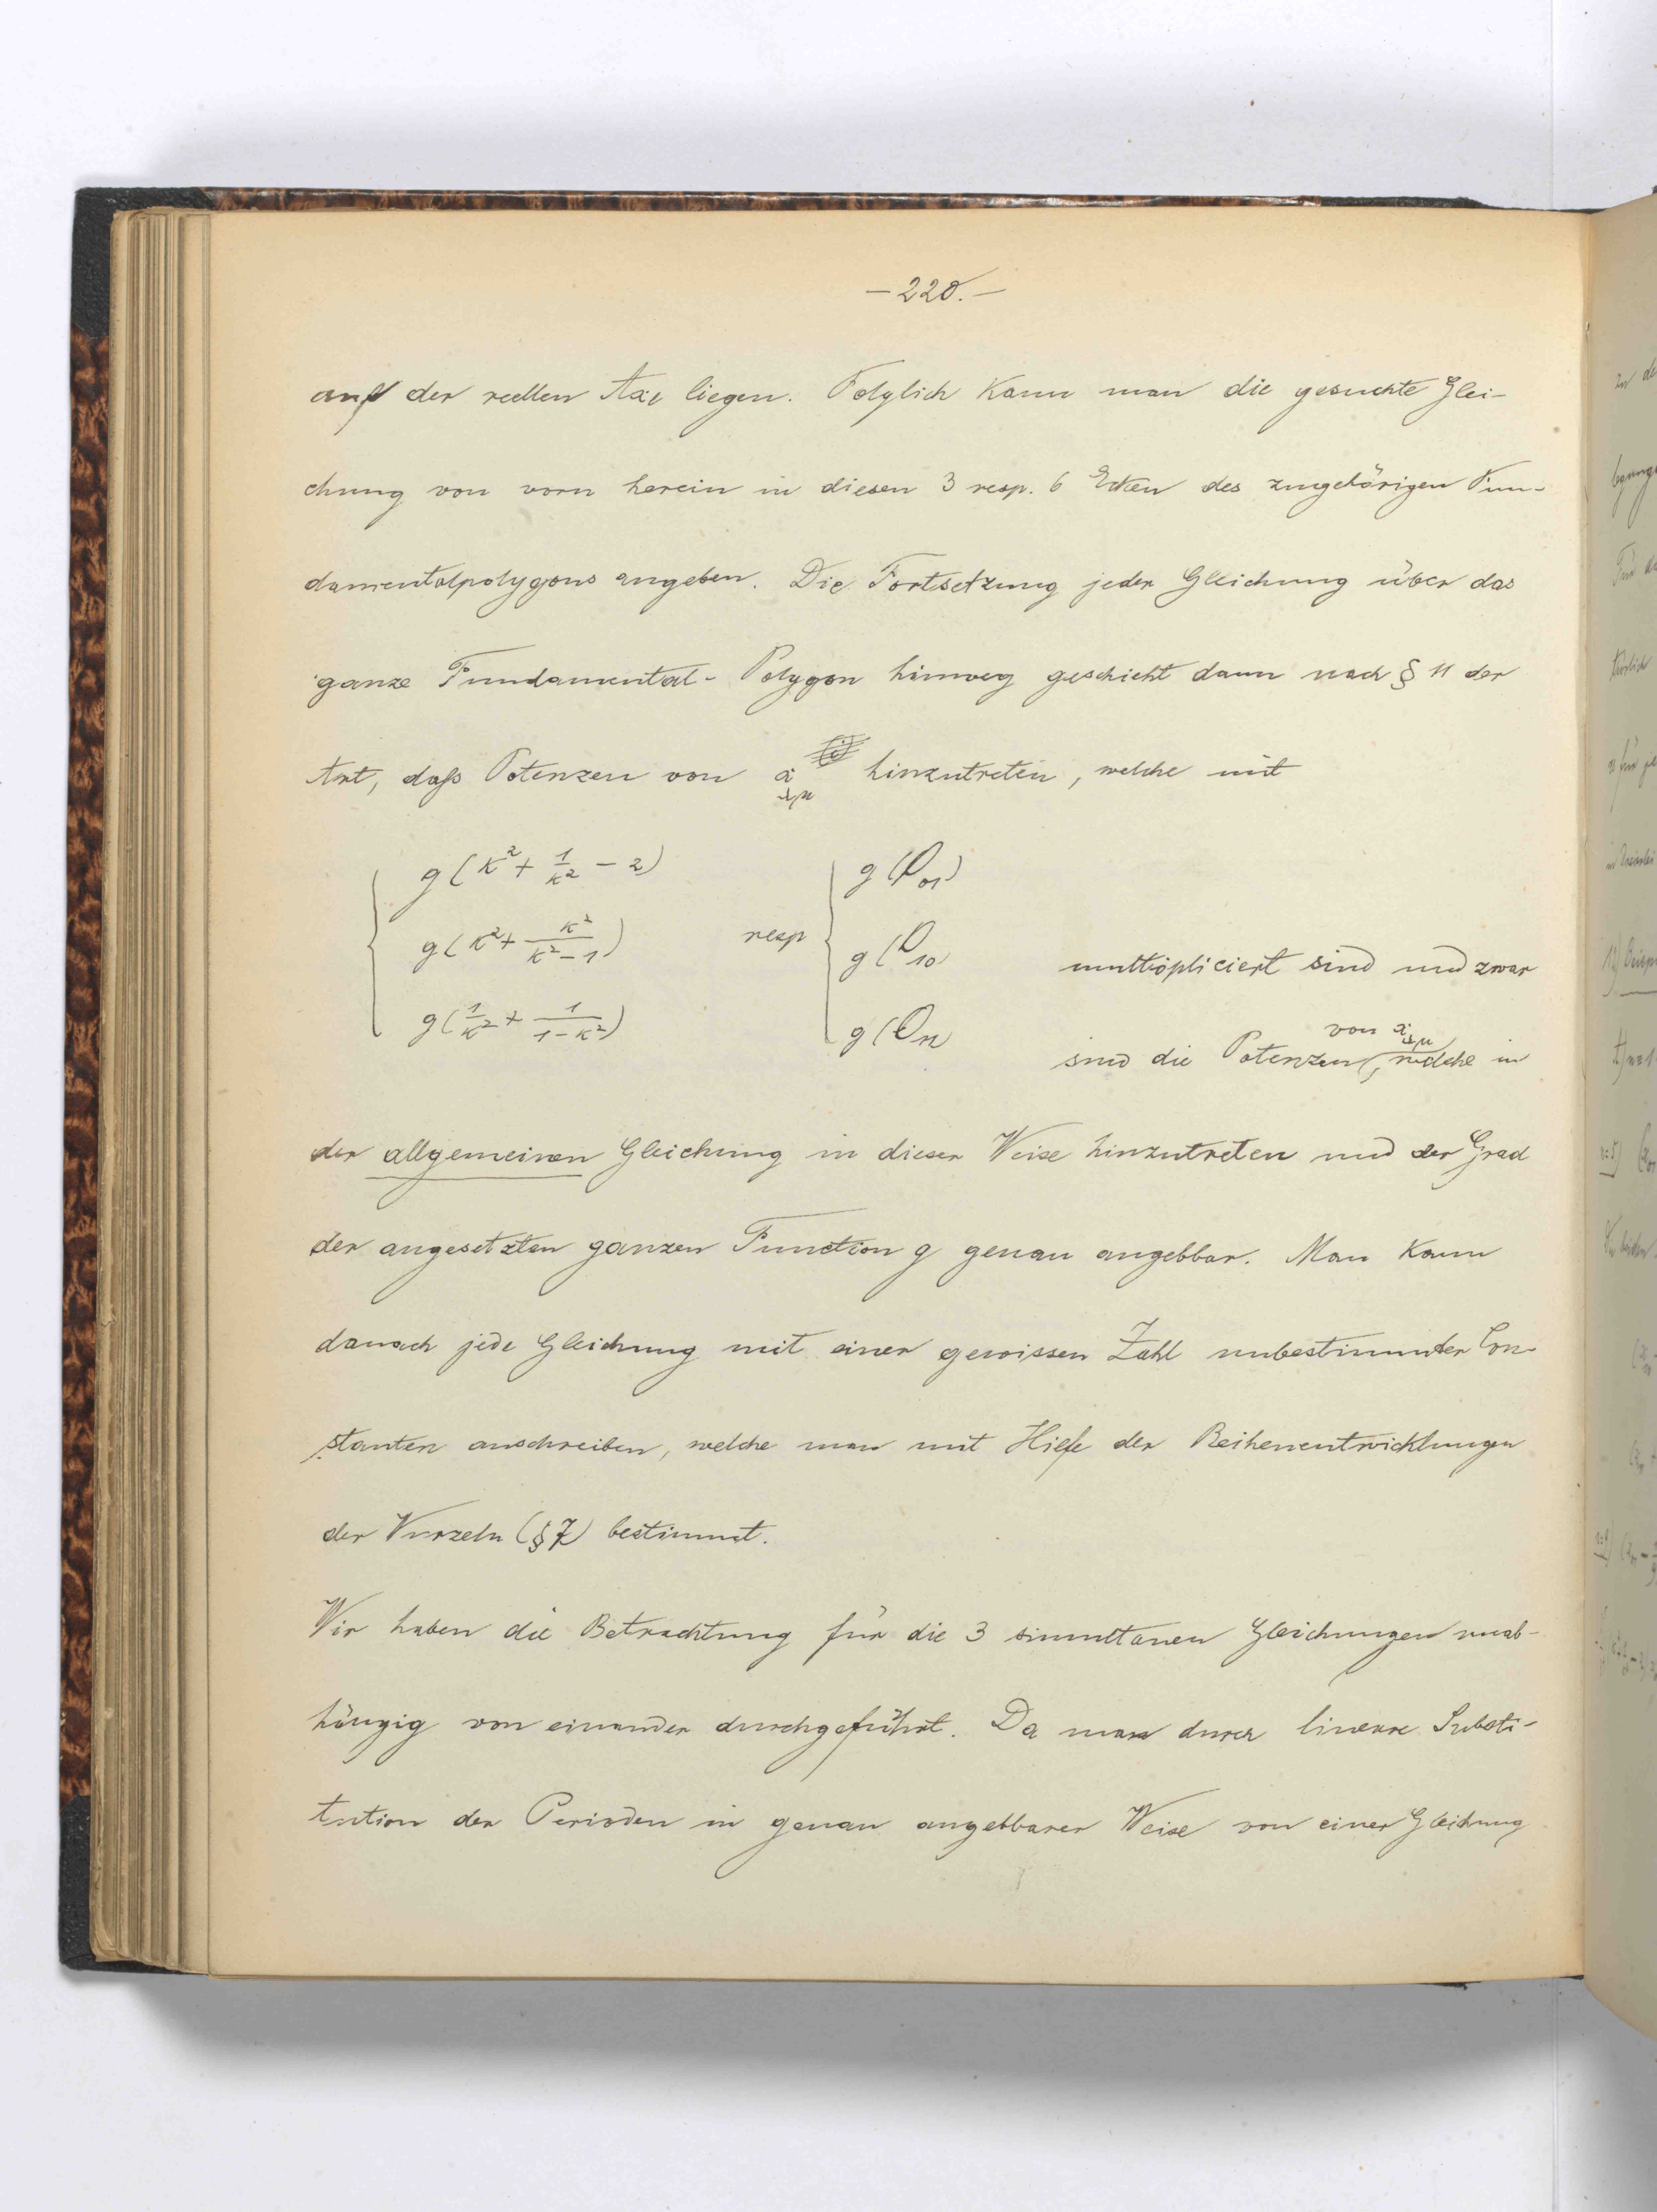 — 220. —
auf der reellen Axe liegen. Folglich kann man die gesuchte Glei-
chung von vorn herein in diesen 3 resp. 6 Ecken des zugehörigen Fun-
damentalpolygons angeben. Die Fortsetzung jeder Gleichung über das
ganze Fundamental-Polygon hinweg geschieht dann nach § 11 der
Art, daß Potenzen von x_{λμ} hinzutreten, welche mit
g(κ² + 1/κ² - 2) g(Q₀₁)
g(κ² + κ²/(κ²-1)) resp g(Q₁₀)
multipliciert sind und zwar
g(1/κ² + 1/(1-κ²)) g(Q₁₁)
sind die Potenzen von x_{λμ}, welche in
der allgemeinen Gleichung in dieser Weise hinzutreten und der Grad
der angesetzten ganzen Function g genau angebbar. Man kann
danach jede Gleichung mit einer gewissen Zahl unbestimmter Con-
stanten anschreiben, welche man mit Hilfe der Reihenentwicklungen
der Wurzeln (§7) bestimmt.
Wir haben die Betrachtung für die 3 simultanen Gleichungen unab-
hängig von einander durchgeführt. Da man durch lineare Substi-
tution der Perioden in genau angebbarer Weise von einer Gleichung